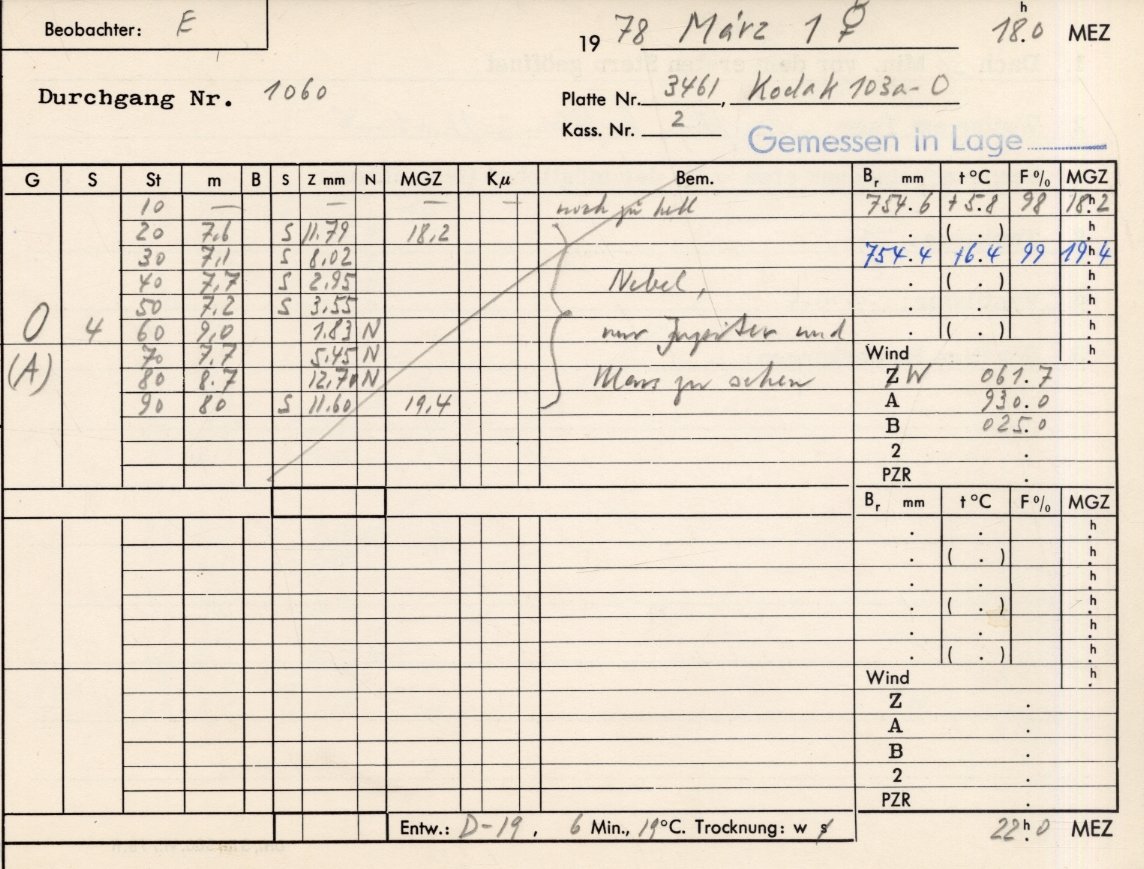 Beobachter: E
19 78 März 1 ☿ 18.h0 MEZ
Durchgang Nr. 1060
Platte Nr. 3461, Kodak 103a-O
Kass. Nr. 2
Gemessen in Lage
G S St m B S Z mm N MGZ Kμ Bem. Br mm t °C F % MGZ
10 — — — — noch zu hell 754.6 +5.8 98 18h.2
20 7,6 S 11.79 18,2 . ( . ) h.
30 7,1 S 8,02 754.4 +6.4 99 19h.4
40 7,7 S 2,95 Nebel, . ( . ) h.
50 7,2 S 3,55 . . h.
O 4 60 9,0 1.83 N nur Jupiter und . ( . ) h.
(A) 70 7.7 5,45 N Wind h.
80 8.7 12,70 N Mars zu sehen Z/W 061.7
90 80 S 11.60 19,4 A 930.0
B 025.0
2 .
PZR .
Br mm t °C F % MGZ
. . h.
. ( . ) h.
. . h.
. ( . ) h.
. . h.
. ( . ) h.
Wind h.
Z .
A .
B .
2 .
PZR .
Entw.: D-19, 6 Min., 19°C. Trocknung: w s 22h.0 MEZ